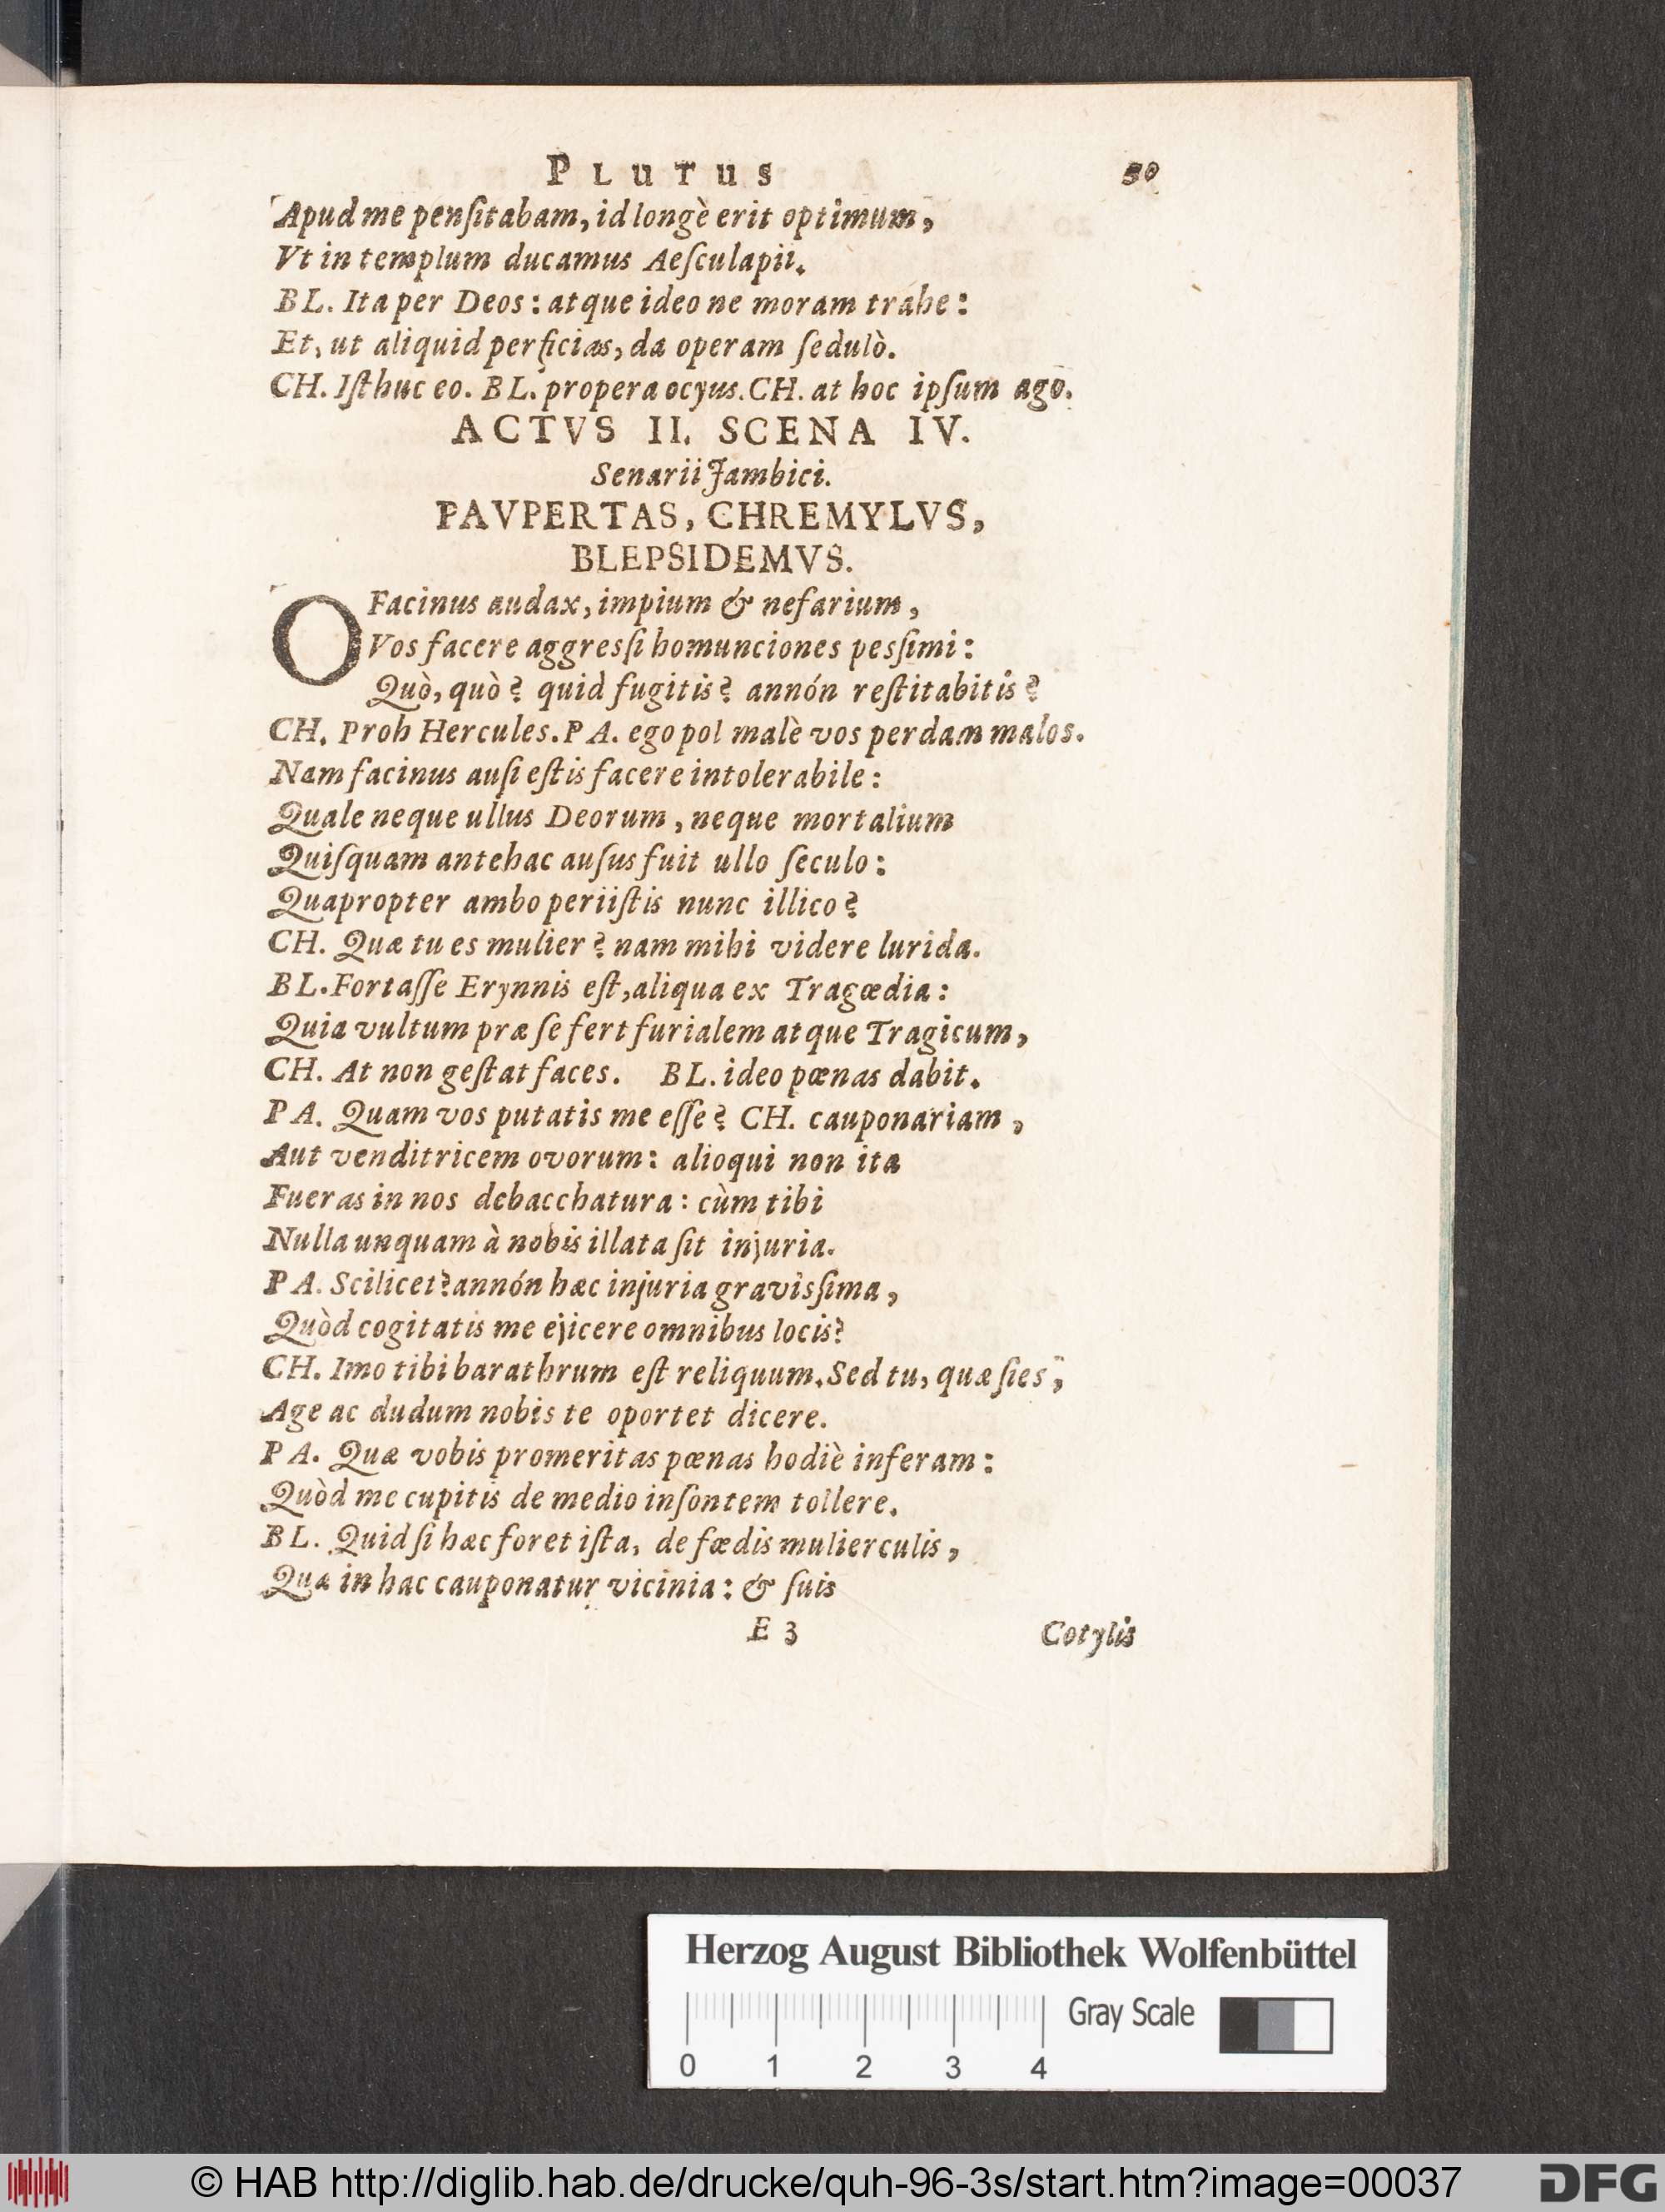 PLUTUS 30
Apud me penſitabam, id longè erit optimum,
Vt in templum ducamus Aeſculapii.
BL. Ita per Deos: atque ideo ne moram trahe:
Et, ut aliquid perficias, da operam ſedulò.
CH. Iſthuc eo. BL. propera ocyus. CH. at hoc ipſum ago.
ACTVS II. SCENA IV.
Senarii Jambici.
PAVPERTAS, CHREMYLVS,
BLEPSIDEMVS.
O Facinus audax, impium & nefarium,
Vos facere aggresſi homunciones pesſimi:
Quò, quò? quid fugitis? annón reſtitabitis?
CH. Proh Hercules. PA. ego pol malè vos perdam malos.
Nam facinus auſi eſtis facere intolerabile:
Quale neque ullus Deorum, neque mortalium
Quiſquam antehac auſus fuit ullo ſeculo:
Quapropter ambo periiſtis nunc illico?
CH. Quæ tu es mulier? nam mihi videre lurida.
BL. Fortaſſe Erynnis eſt, aliqua ex Tragœdia:
Quia vultum præ ſe fert furialem atque Tragicum,
CH. At non geſtat faces. BL. ideo pœnas dabit.
PA. Quam vos putatis me eſſe? CH. cauponariam,
Aut venditricem ovorum: alioqui non ita
Fueras in nos debacchatura: cùm tibi
Nulla unquam à nobis illata ſit injuria.
PA. Scilicet? annón hæc injuria gravisſima,
Quòd cogitatis me ejicere omnibus locis?
CH. Imo tibi barathrum eſt reliquum. Sed tu, quæ ſies,
Age ac dudum nobis te oportet dicere.
PA. Quæ vobis promeritas pœnas hodiè inferam:
Quòd me cupitis de medio inſontem tollere.
BL. Quid ſi hæc foret iſta, de fœdis mulierculis,
Quæ in hac cauponatur vicinia: & ſuis
E 3 Cotylis
Herzog August Bibliothek Wolfenbüttel
Gray Scale
0 1 2 3 4
© HAB http://diglib.hab.de/drucke/quh-96-3s/start.htm?image=00037 DFG